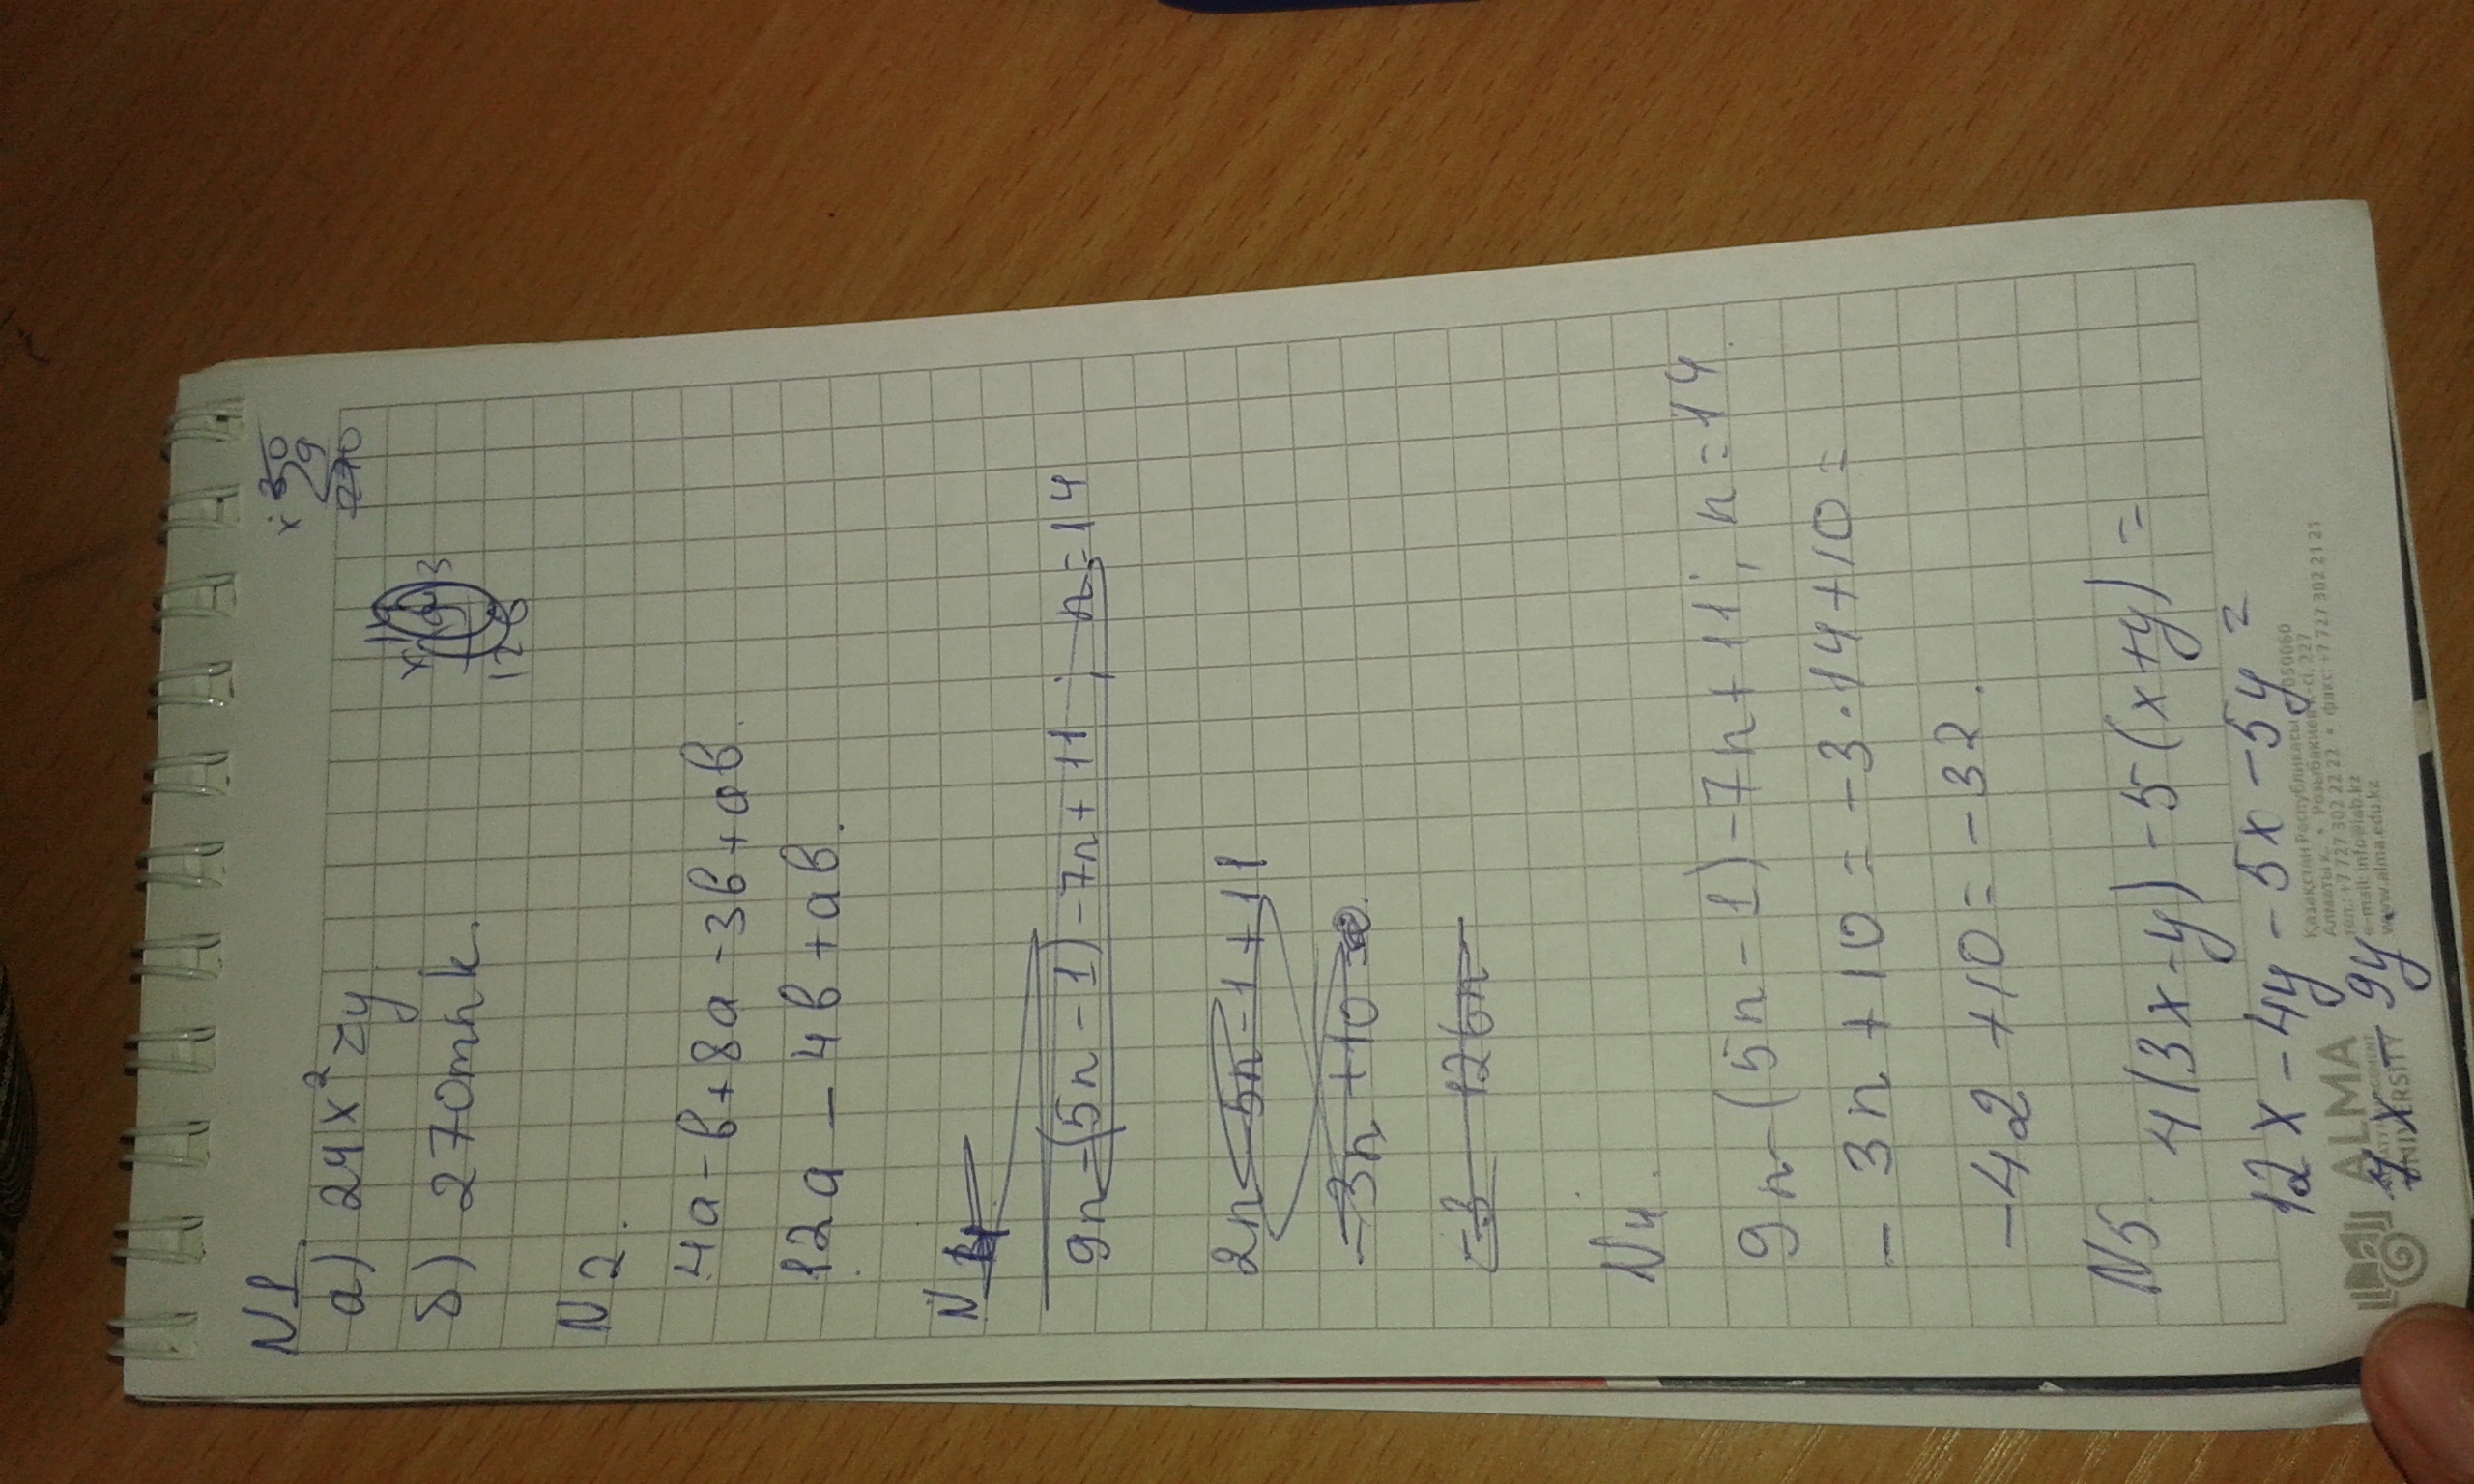 N1
× 30
9
270
а) 24x² zy
б) 270mnk.
126
N2.
4a - b + 8a - 3b + ab.
12a - 4b + ab.
N
9n - (5n - 1) - 7n + 11; n = 14
2n - 5n - 1 + 11
- 3n + 10
N4.
9n - (5n - 1) - 7n + 11; n = 14.
- 3n + 10 = - 3 · 14 + 10 =
- 42 + 10 = - 32.
N5. 4(3x - y) - 5(x + y) =
12x - 4y - 5x - 5y ²
7x - 9y
ALMA
MANAGEMENT
UNIVERSITY
Қазақстан Республикасы, 050060
Алматы қ. • Розыбакиев к-сі, 227
тел.: +7 727 302 22 22 • факс: +7 727 302 21 21
e-mail: info@iab.kz
www.alma.edu.kz